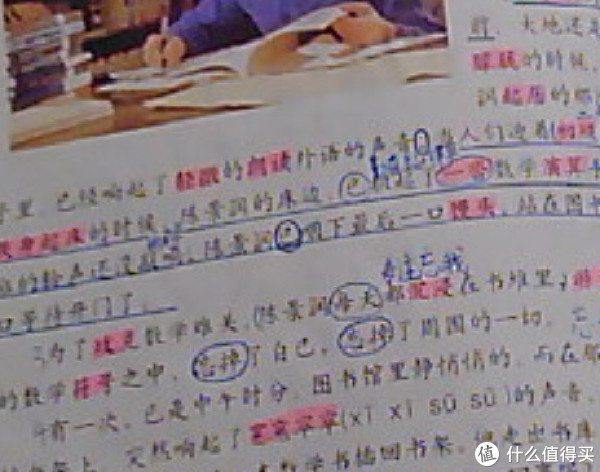 前，大地还是
朦胧的时候，
润起居的那
子里，已经响起了轻微的朗读外语的声音。当人们迎着
晨起床的时候，陈景润的床边，已 起了一 数学演算
的铃声还没 响，陈景润已咽下最后一口馒头，站在图书
口等待开门了。
专注忘我
为了攻克数学难关，陈景润每天都沉浸在书堆里，
的数学符号之中，忘掉了自己，忘掉了周围的一切。忘
有一次，已是中午时分，图书馆里静悄悄的，
上，突然响起了窸窸窣窣(xī xī sū sū)的声音，
数学书插回书架，
值 什么值得买